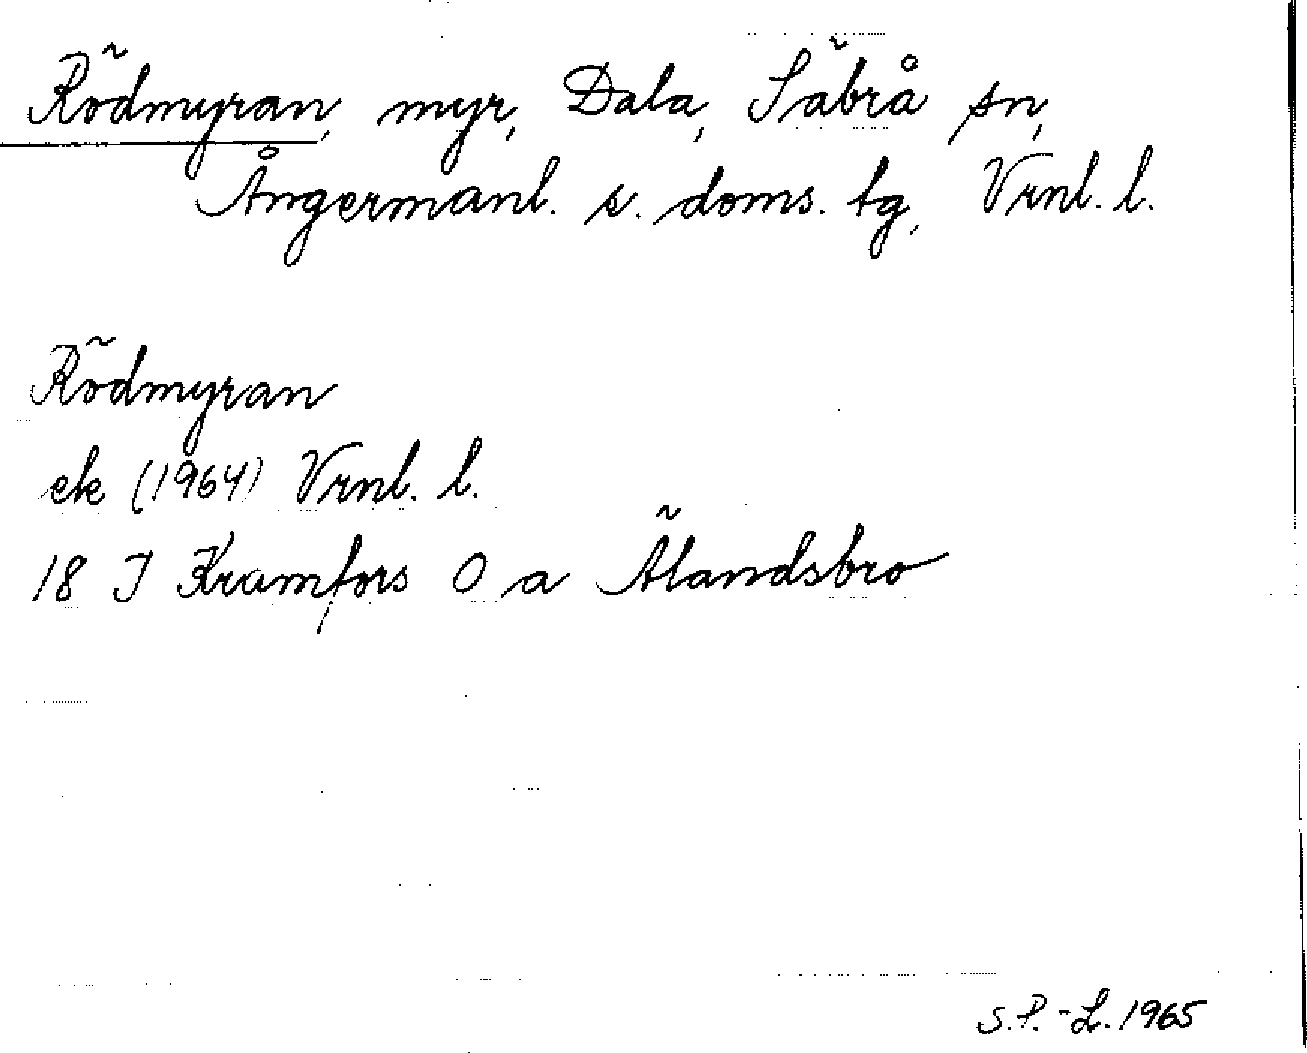 Rödmyran, myr, Dala, Säbrå sn,
Ångermanl. s. doms. tg, Vrnl. l.
Rödmyran
ek (1964) Vrnl. l.
18 I Kramfors O a Älandsbro
S.P.-L. 1965